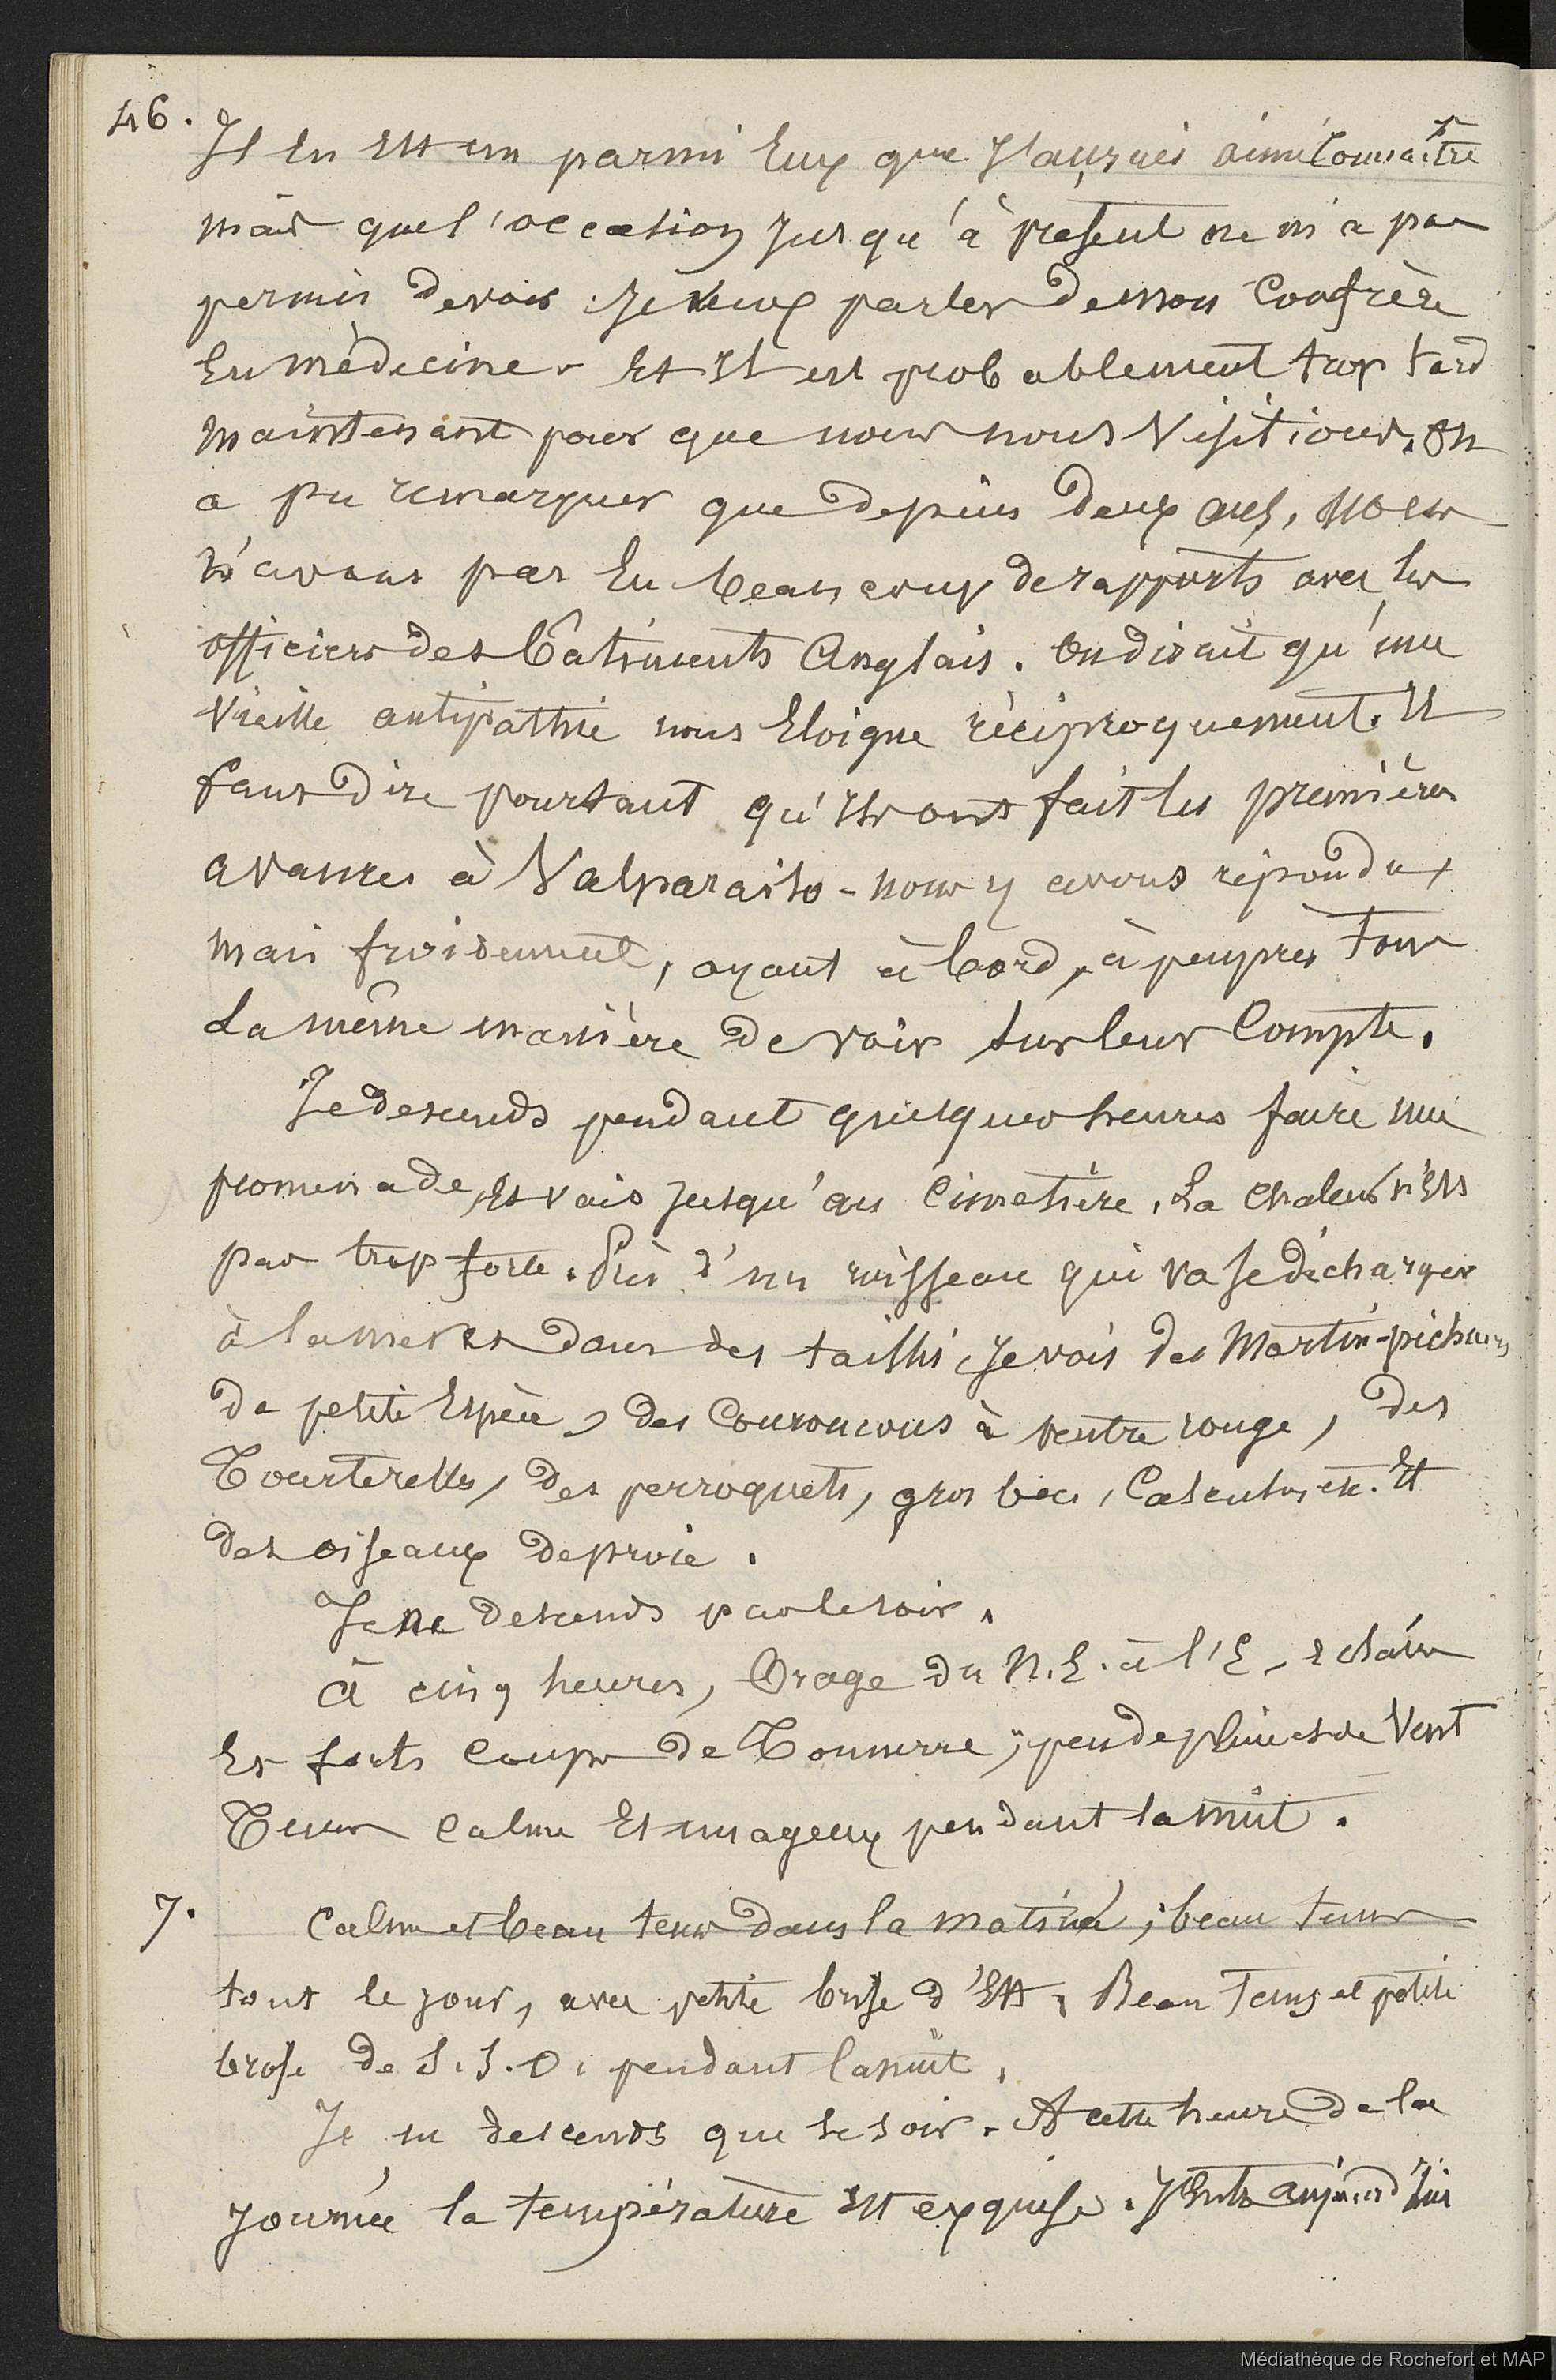 46.
Il en est un parmi eux que j'aurais aimé connaître
mais que l'occasion jusqu'à présent ne m'a pas
permis de voir. Je veux parler de mon confrère
en médecine. et il est probablement trop tard
maintenant pour que nous nous visitions. on
a pu remarquer que depuis deux ans, nous
n'avons pas eu beaucoup de rapports avec les
officiers des bâtiments anglais. on dirait qu'une
vieille antipathie nous éloigne réciproquement. Il
faut dire pourtant qu'ils ont fait les premières
avances à Valparaiso - nous y avons répondu,
mais froidement, ayant à bord, à peu près tous
la même manière de voir sur leur compte.
Je descends pendant quelques heures faire une
promenade, et vais jusqu'au cimetière. La chaleur n'est
pas trop forte. Près d'un ruisseau qui va se décharger
à la mer et dans des taillis, je vois des Martin-pêcheurs
de petite espèce, des Couroucous à ventre rouge, des
Tourterelles, des perroquets, gros becs, etc. et
des oiseaux de proie.
Je ne descends pas le soir.
à cinq heures, Orage du N.E. à l'E, éclairs
et forts coups de Tonnerre; peu de pluie et de vent
Tems calme et nuageux pendant la nuit.
7.
Calme et beau tems dans la matinée; beau tems
tout le jour, avec petite brise d'Est. Beau Tems et petite
brise de S.S.O. pendant la nuit.
Je ne descends que le soir. A cette heure de la
journée la température est exquise. aujourd'hui
Médiathèque de Rochefort et MAP